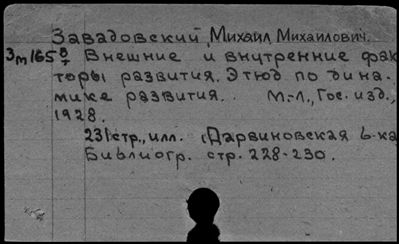 Завадовский, Михаил Михайлович.
Зт1658/7 Внешние и внутренние фак
торы развития. Этюд по дина-
мике развития. М.-Л., Гос. изд.,
1928.
231 стр., илл. (Дарвиновская б-ка
Библиогр. стр. 228-230.